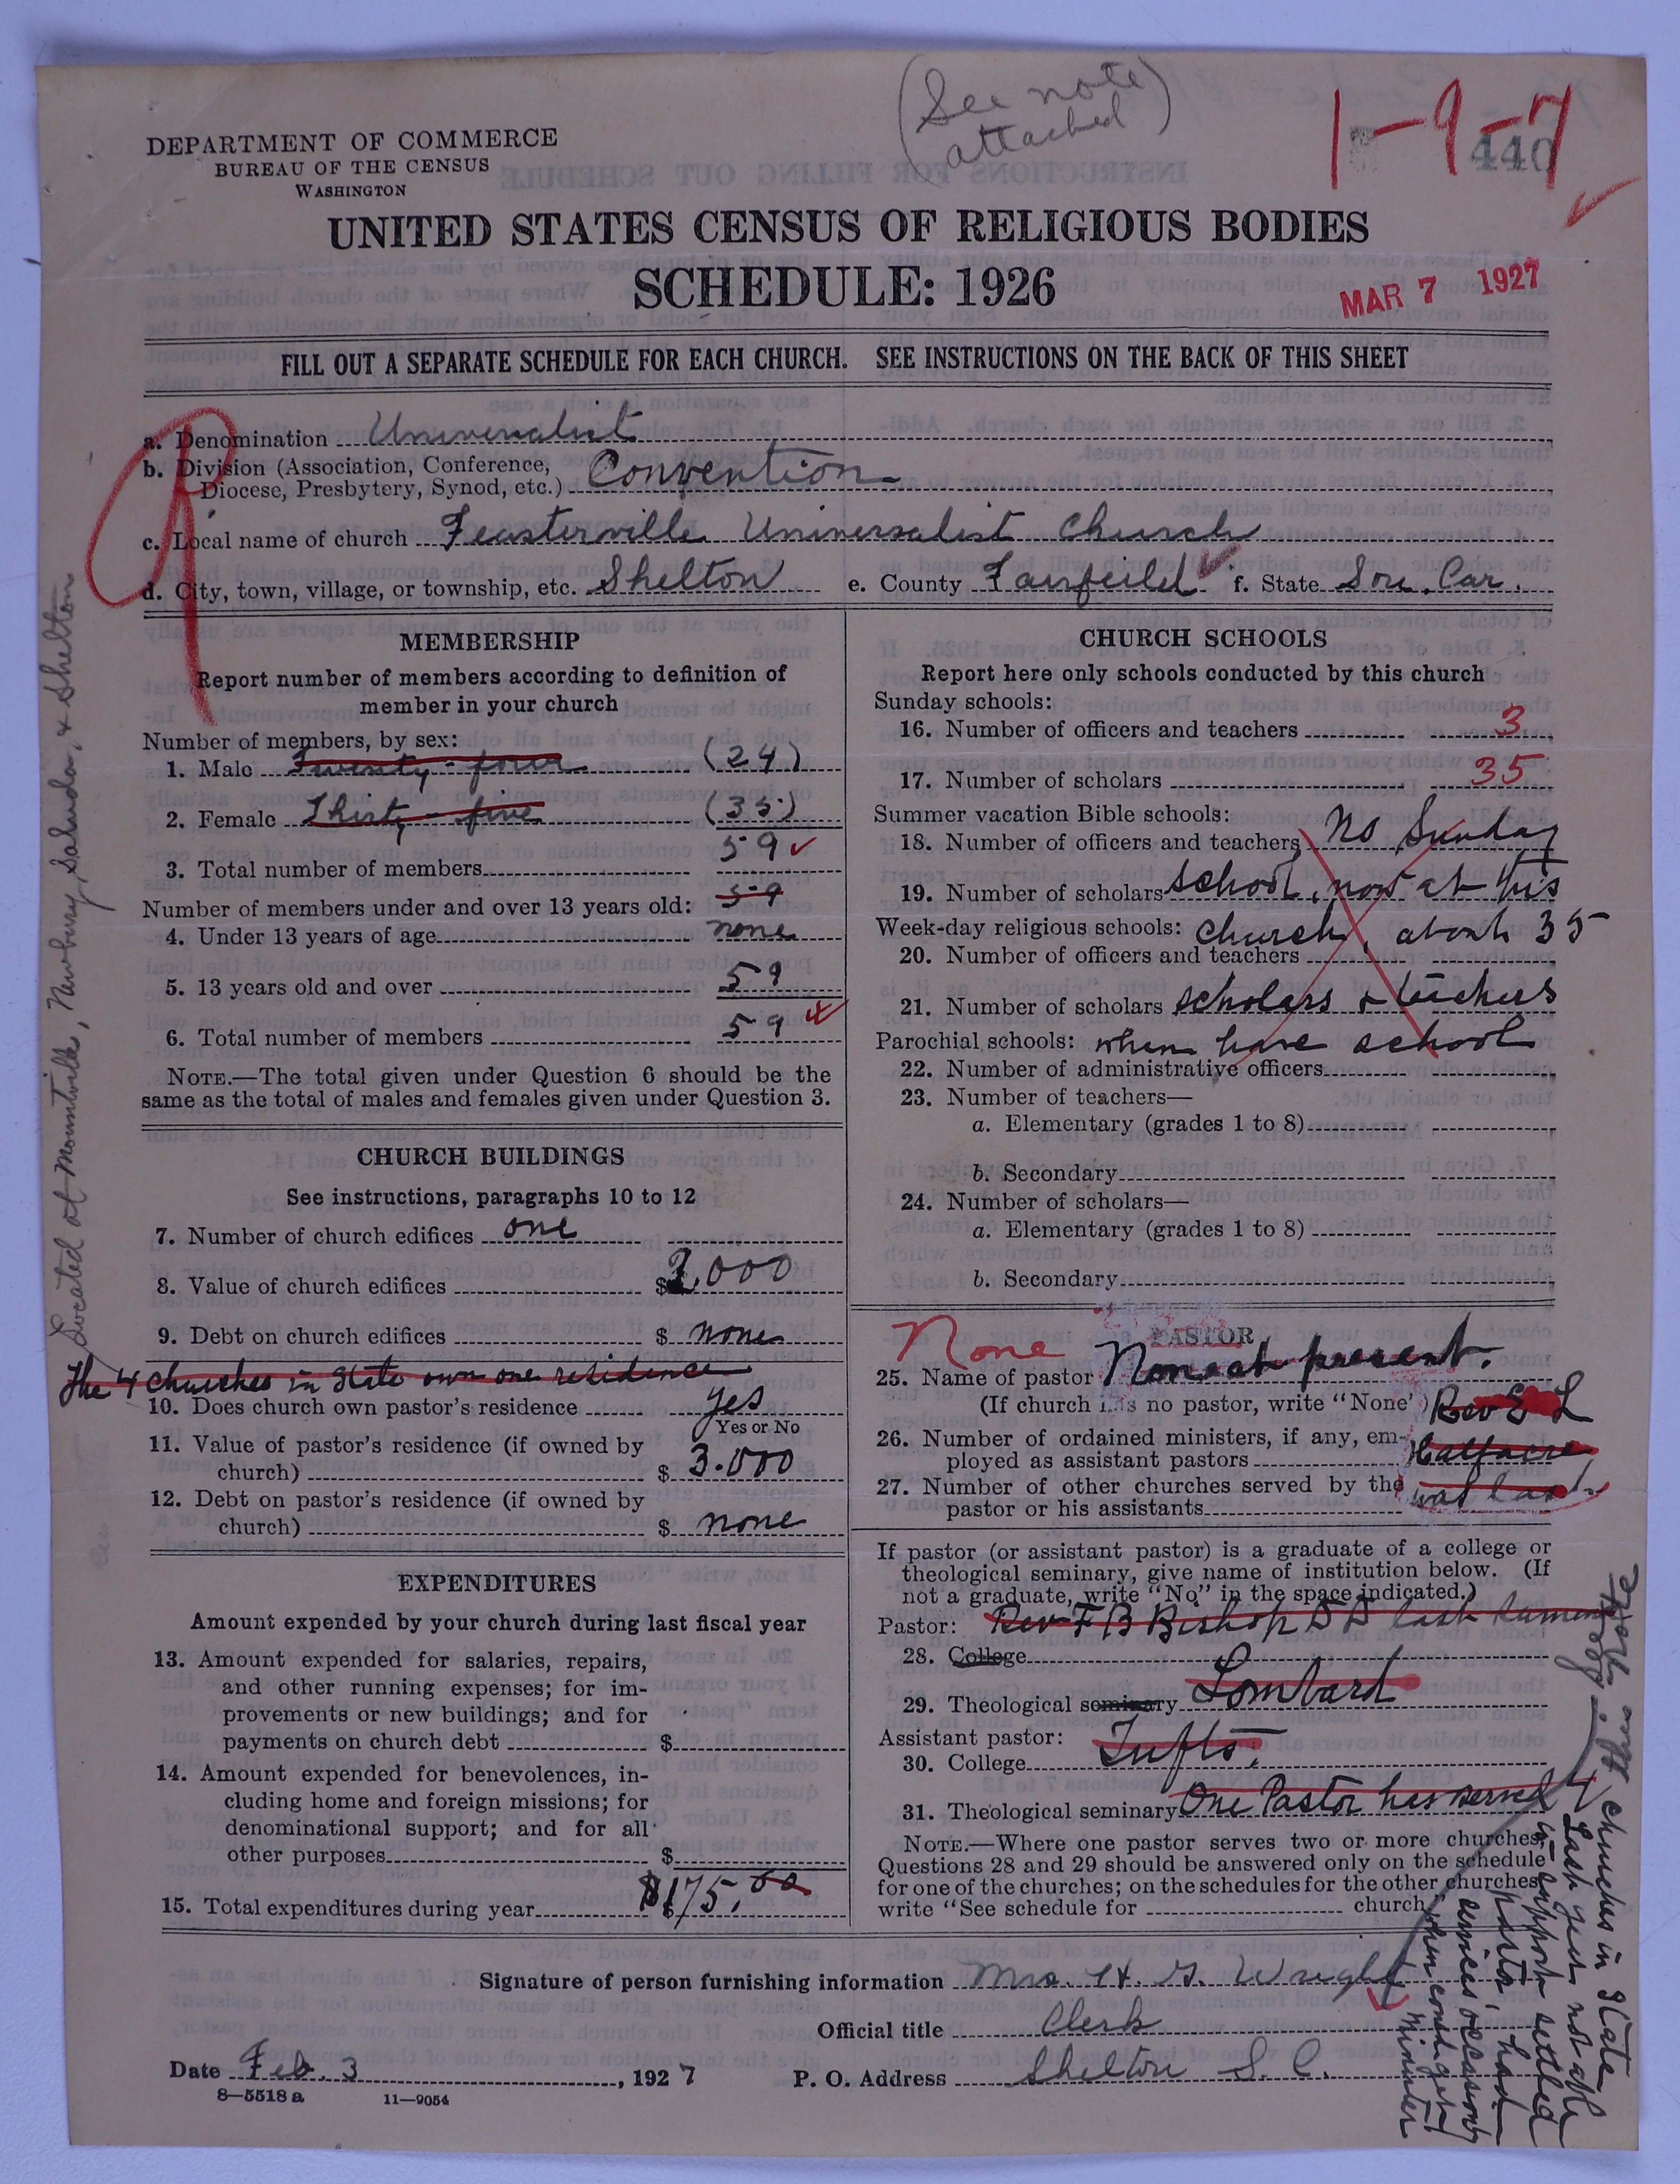 (See note
attached)
1-9-7
440
DEPARTMENT OF COMMERCE
BUREAU OF THE CENSUS
WASHINGTON
UNITED STATES CENSUS OF RELIGIOUS BODIES
SCHEDULE: 1926
MAR 7 1927
FILL OUT A SEPARATE SCHEDULE FOR EACH CHURCH. SEE INSTRUCTIONS ON THE BACK OF THIS SHEET
a. Denomination Universalist
b. Division (Association, Conference,
Diocese, Presbytery, Synod, etc.) Convention
c. Local name of church Feasterville Universalist Church
d. City, town, village, or township, etc. Shelton e. County Fairfeild f. State Sou. Car.
MEMBERSHIP
Report number of members according to definition of
member in your church
Number of members, by sex:
1. Male Twenty-four (24)
2. Female Thirty-five (35)
59
3. Total number of members
59
Number of members under and over 13 years old:
4. Under 13 years of age none
5. 13 years old and over 59
6. Total number of members 59
NOTE.—The total given under Question 6 should be the
same as the total of males and females given under Question 3.
CHURCH BUILDINGS
See instructions, paragraphs 10 to 12
7. Number of church edifices one
8. Value of church edifices $ 2,000
9. Debt on church edifices $ none
The 4 churches in State own one residence
Located at Mountville, Newberry, Saluda, & Shelton
10. Does church own pastor's residence yes
Yes or No
11. Value of pastor's residence (if owned by
church) $ 3.000
12. Debt on pastor's residence (if owned by
church) $ none
EXPENDITURES
Amount expended by your church during last fiscal year
13. Amount expended for salaries, repairs,
and other running expenses; for im-
provements or new buildings; and for
payments on church debt $
14. Amount expended for benevolences, in-
cluding home and foreign missions; for
denominational support; and for all
other purposes $
15. Total expenditures during year $175.00
CHURCH SCHOOLS
Report here only schools conducted by this church
Sunday schools:
16. Number of officers and teachers 3
17. Number of scholars 35
Summer vacation Bible schools:
18. Number of officers and teachers No Sunday
19. Number of scholars school, now at this
Week-day religious schools: church, about 35
20. Number of officers and teachers
21. Number of scholars scholars & teachers
Parochial schools: when have school
22. Number of administrative officers
23. Number of teachers—
a. Elementary (grades 1 to 8)
b. Secondary
24. Number of scholars—
a. Elementary (grades 1 to 8)
b. Secondary
None PASTOR
25. Name of pastor None at present.
(If church has no pastor, write "None") Rev E L
26. Number of ordained ministers, if any, em-
ployed as assistant pastors Halfacre
27. Number of other churches served by the
pastor or his assistants was last
If pastor (or assistant pastor) is a graduate of a college or
theological seminary, give name of institution below. (If
not a graduate, write "No" in the space indicated.)
Pastor: Rev F B Bishop D D last
28. College
29. Theological seminary Lombard
Assistant pastor: Tufts.
30. College
31. Theological seminary One Pastor has served 4
NOTE.—Where one pastor serves two or more churches,
Questions 28 and 29 should be answered only on the schedule
for one of the churches; on the schedules for the other churches
write "See schedule for church."
churches in State
Last year not able
to support settled
pastor, had
services occasionly
when could get
Minister
Signature of person furnishing information Mrs. H. G. Wright
Official title Clerk
Date Feb. 3, 1927 P. O. Address Shelton S. C.
8-5518 a 11-9054